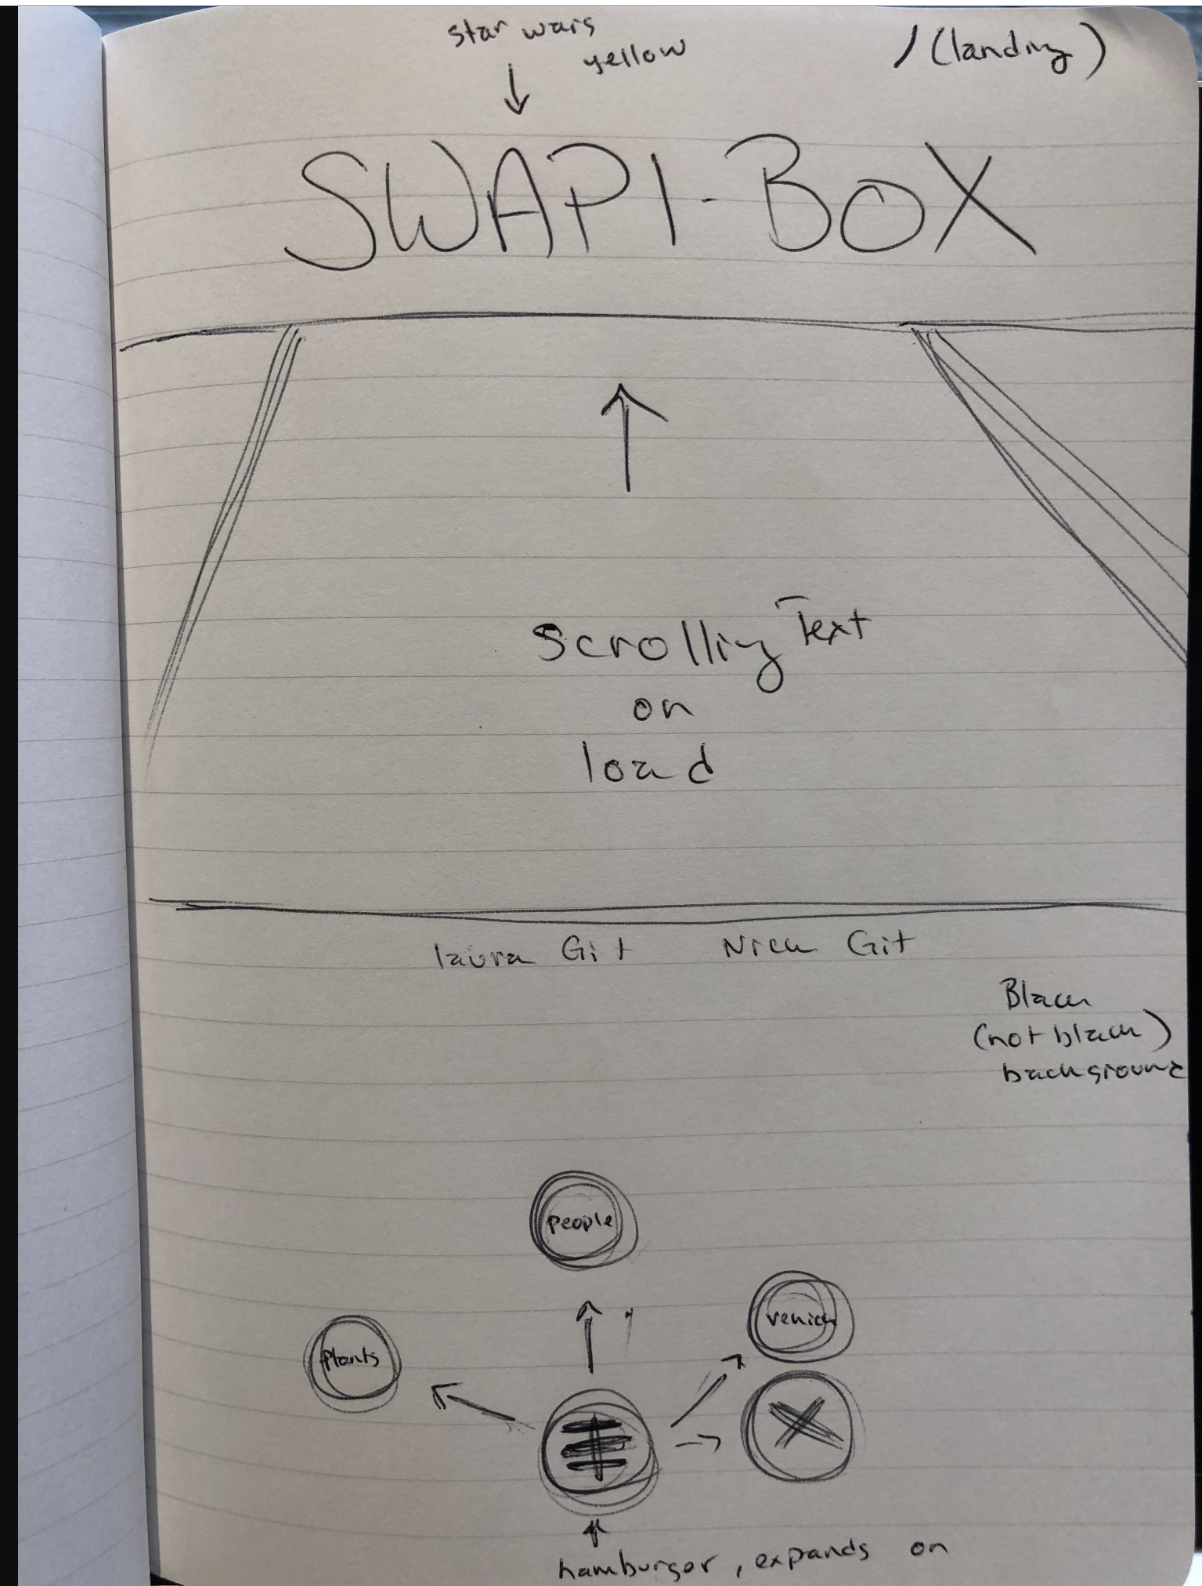 star wars
yellow
/ (landing)
SWAPI-BOX
Scrolling Text
on
load
laura Git Nick Git
Black
(not black)
background
people
vehicle
Plants
hamburger, expands on